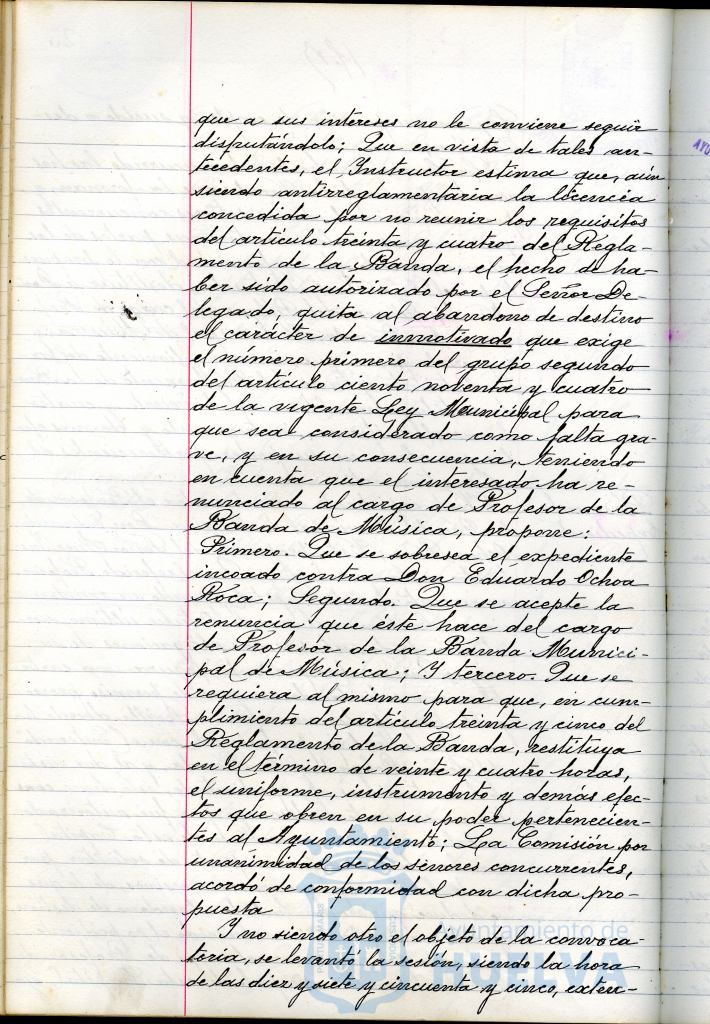 que a sus intereses no le conviene seguir
disfrutándolo; Que en vista de tales an-
tecedentes, el Instructor estima que, aún
siendo antirreglamentaria la licencia
concedida por no reunir los requisitos
del artículo treinta y cuatro del Regla-
mento de la Banda, el hecho de ha-
ber sido autorizado por el Señor De-
legado, quita al abandono de destino
el carácter de inmotivado que exige
el número primero del grupo segundo
del artículo ciento noventa y cuatro
de la vigente Ley Municipal para
que sea considerado como falta gra-
ve, y en su consecuencia, teniendo
en cuenta que el interesado ha re-
nunciado al cargo de Profesor de la
Banda de Música, propone:
Primero. Que se sobresea el expediente
incoado contra Don Eduardo Ochoa
Roca; Segundo. Que se acepte la
renuncia que éste hace del cargo
de Profesor de la Banda Munici-
pal de Música; Y tercero. Que se
requiera al mismo para que, en cum-
plimiento del artículo treinta y cinco del
Reglamento de la Banda, restituya
en el término de veinte y cuatro horas,
el uniforme, instrumento y demás efec-
tos que obren en su poder pertenecien-
tes al Ayuntamiento; La Comisión por
unanimidad de los señores concurrentes,
acordó de conformidad con dicha pro-
puesta
Y no siendo otro el objeto de la convoca-
toria, se levantó la sesión, siendo la hora
de las diez y siete y cincuenta y cinco, exten-
Ayuntamiento de
HUELVA